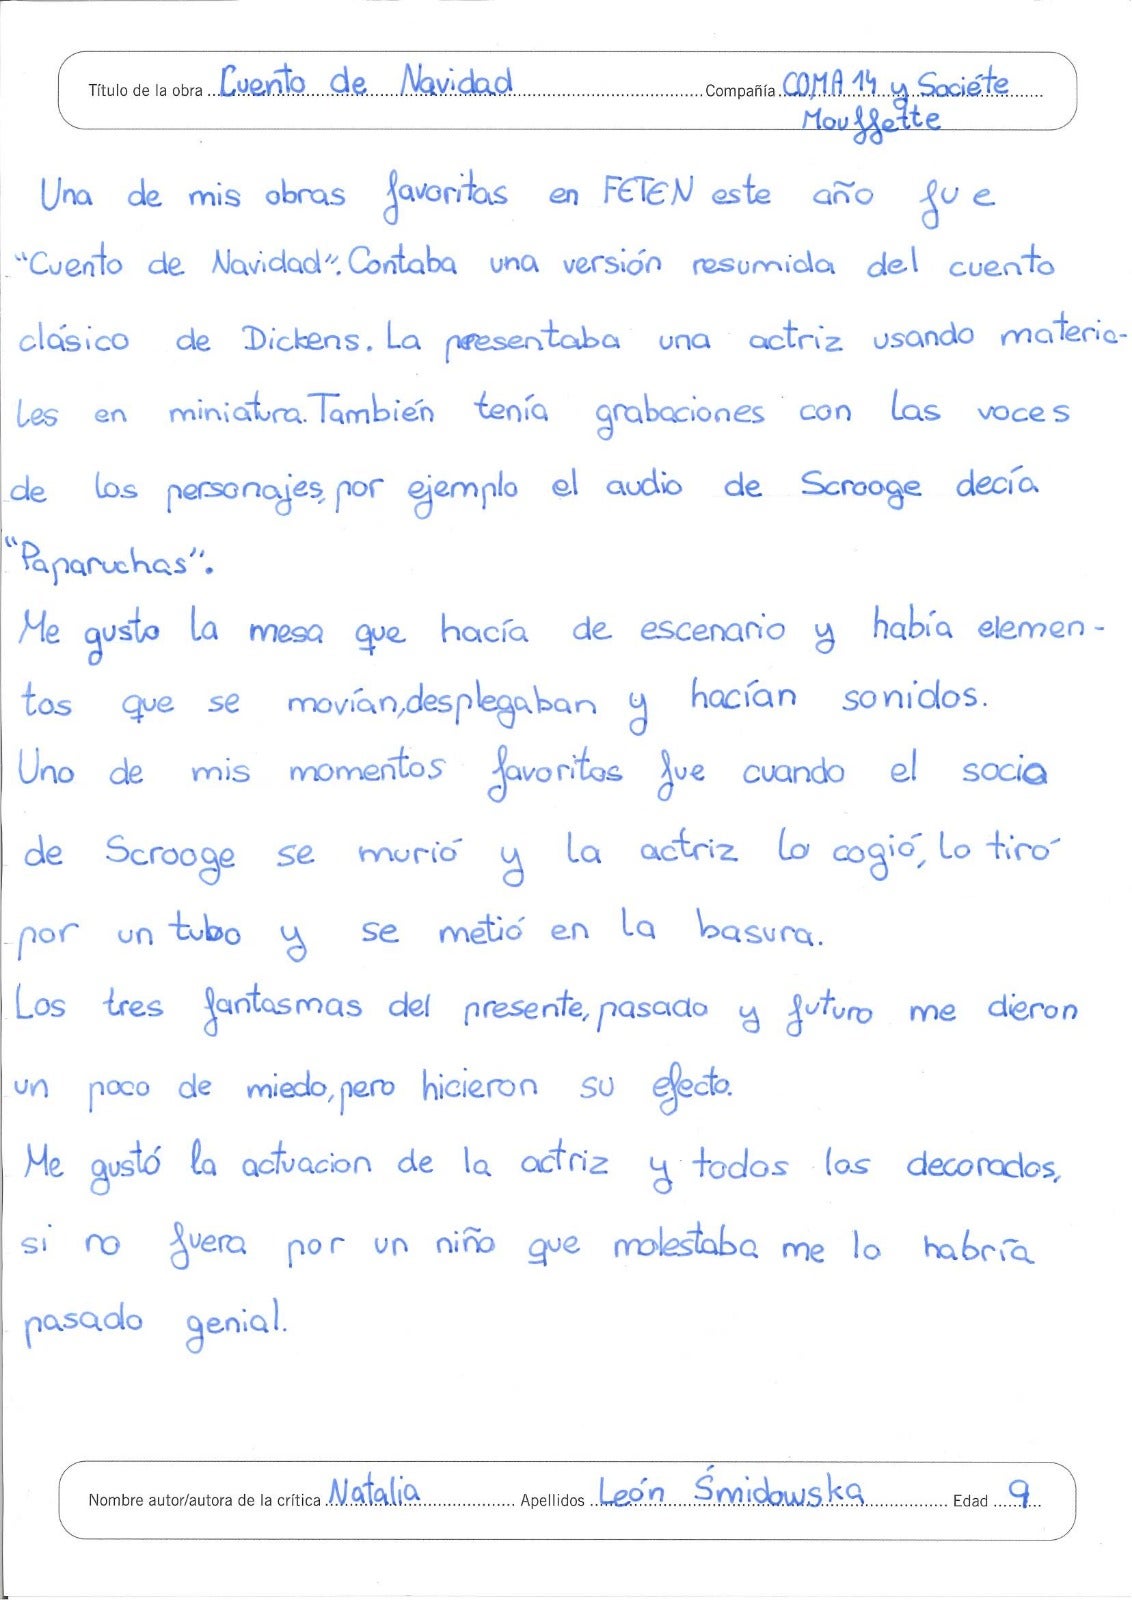 Título de la obra Cuento de Navidad Compañía COMA 14 y Sociéte
Mouffette
Una de mis obras favoritas en FETEN este año fue
"Cuento de Navidad". Contaba una versión resumida del cuento
clásico de Dickens. La presentaba una actriz usando materia-
les en miniatura. También tenía grabaciones con las voces
de los personajes, por ejemplo el audio de Scrooge decía
"Paparuchas".
Me gusto la mesa que hacía de escenario y había elemen-
tos que se movían, desplegaban y hacían sonidos.
Uno de mis momentos favoritos fue cuando el socio
de Scrooge se murió y la actriz lo cogió, lo tiró
por un tubo y se metió en la basura.
Los tres fantasmas del presente, pasado y futuro me dieron
un poco de miedo, pero hicieron su efecto.
Me gustó la actuacion de la actriz y todos los decorados,
si no fuera por un niño que molestaba me lo habría
pasado genial.
Nombre autor/autora de la crítica Natalia Apellidos León Śmidowska Edad 9